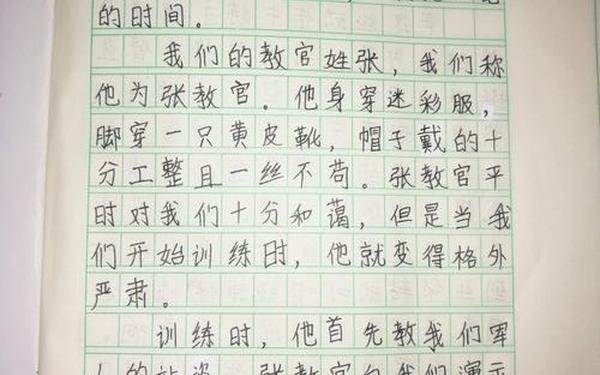 的时间。
我们的教官姓张，我们称
他为张教官。他身穿迷彩服，
脚穿一只黄皮靴，帽子戴的十
分工整且一丝不苟。张教官平
时对我们十分和蔼，但是当我
们开始训练时，他就变得格外
严肃。
训练时，他首先教我们军
的站姿。张教官向我们演示